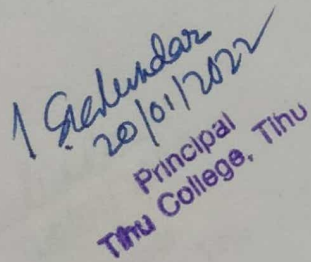 20/01/2022
Principal
Tihu College, Tihu